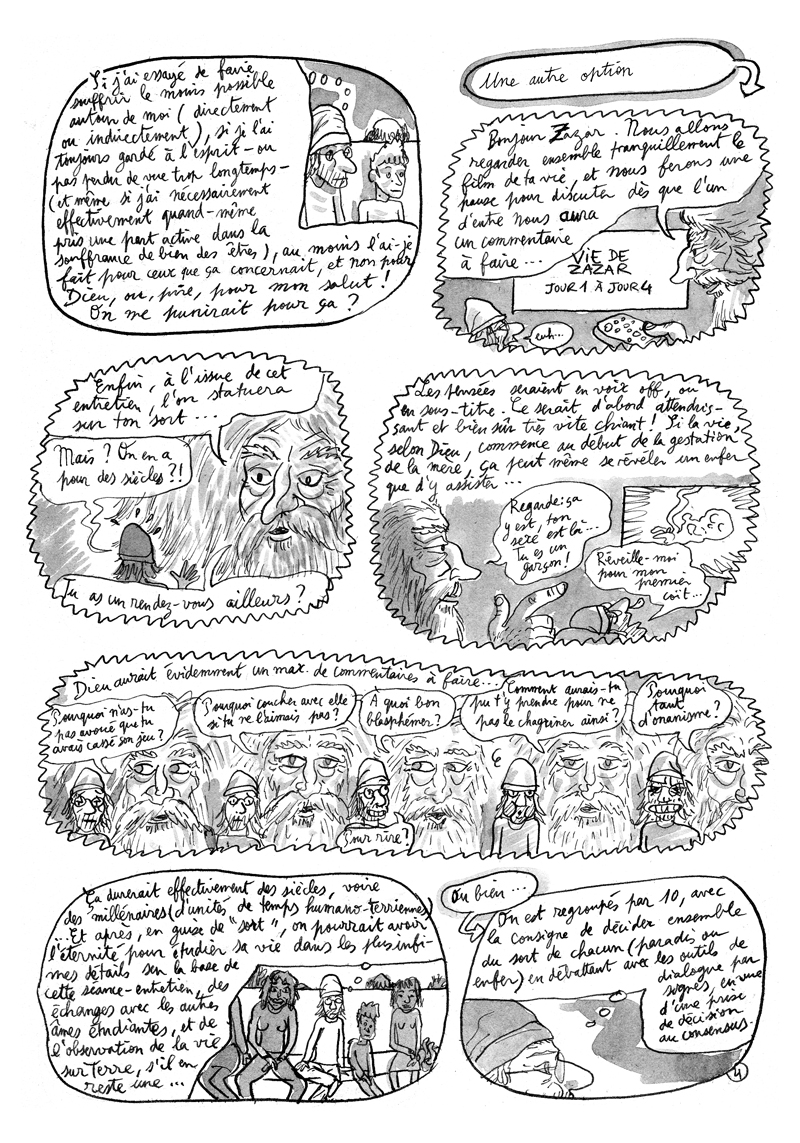 Si j'ai essayé de faire
souffrir le moins possible
autour de moi (directement
ou indirectement), si je l'ai
toujours gardé à l'esprit - ou
pas perdu de vue trop longtemps -
(et même si j'ai nécessairement
effectivement quand-même
pris une part active dans la
souffrance de bien des êtres), au moins l'ai-je
fait pour ceux que ça concernait, et non pour
Dieu, ou, pire, pour mon salut !
On me punirait pour ça ?
Une autre option
Bonjour Zazar. Nous allons
regarder ensemble tranquillement le
film de ta vie, et nous ferons une
pause pour discuter dès que l'un
d'entre nous aura
un commentaire
à faire...
VIE DE
ZAZAR
JOUR 1 À JOUR 4
euh...
Enfin, à l'issue de cet
entretien, l'on statuera
sur ton sort...
Mais ? On en a
pour des siècles ?!
Tu as un rendez-vous ailleurs ?
Les pensées seraient en voix off, ou
en sous-titre. Ce serait d'abord attendris-
sant et bien sûr très vite chiant ! Si la vie,
selon Dieu, commence au début de la gestation
de la mère, ça peut même se révéler un enfer
que d'y assister...
Regarde : ça
y est, ton
sexe est là...
Tu es un
garçon !
Réveille-moi
pour mon
premier
coït...
Dieu aurait évidemment un max. de commentaires à faire...
Pourquoi n'as-tu
pas avoué que tu
avais cassé son jeu ?
Pourquoi coucher avec elle
si tu ne l'aimais pas ?
À quoi bon
blasphémer ?
Pour rire ?
Comment aurais-tu
pu t'y prendre pour ne
pas le chagriner ainsi ?
Pourquoi
tant
d'onanisme ?
Ça durerait effectivement des siècles, voire
des millénaires (d'unités de temps humano-terriennes)
...Et après, en guise de "sort", on pourrait avoir
l'éternité pour étudier sa vie dans les plus infi-
mes détails sur la base de
cette séance-entretien, des
échanges avec les autres
âmes étudiantes, et de
l'observation de la vie
sur Terre, s'il en
reste une...
Ou bien...
On est regroupés par 10, avec
la consigne de décider ensemble
du sort de chacun (paradis ou
enfer) en débattant avec les outils de
dialogue par
sognes, en vue
d'une prise
de décision
au consensus.
4